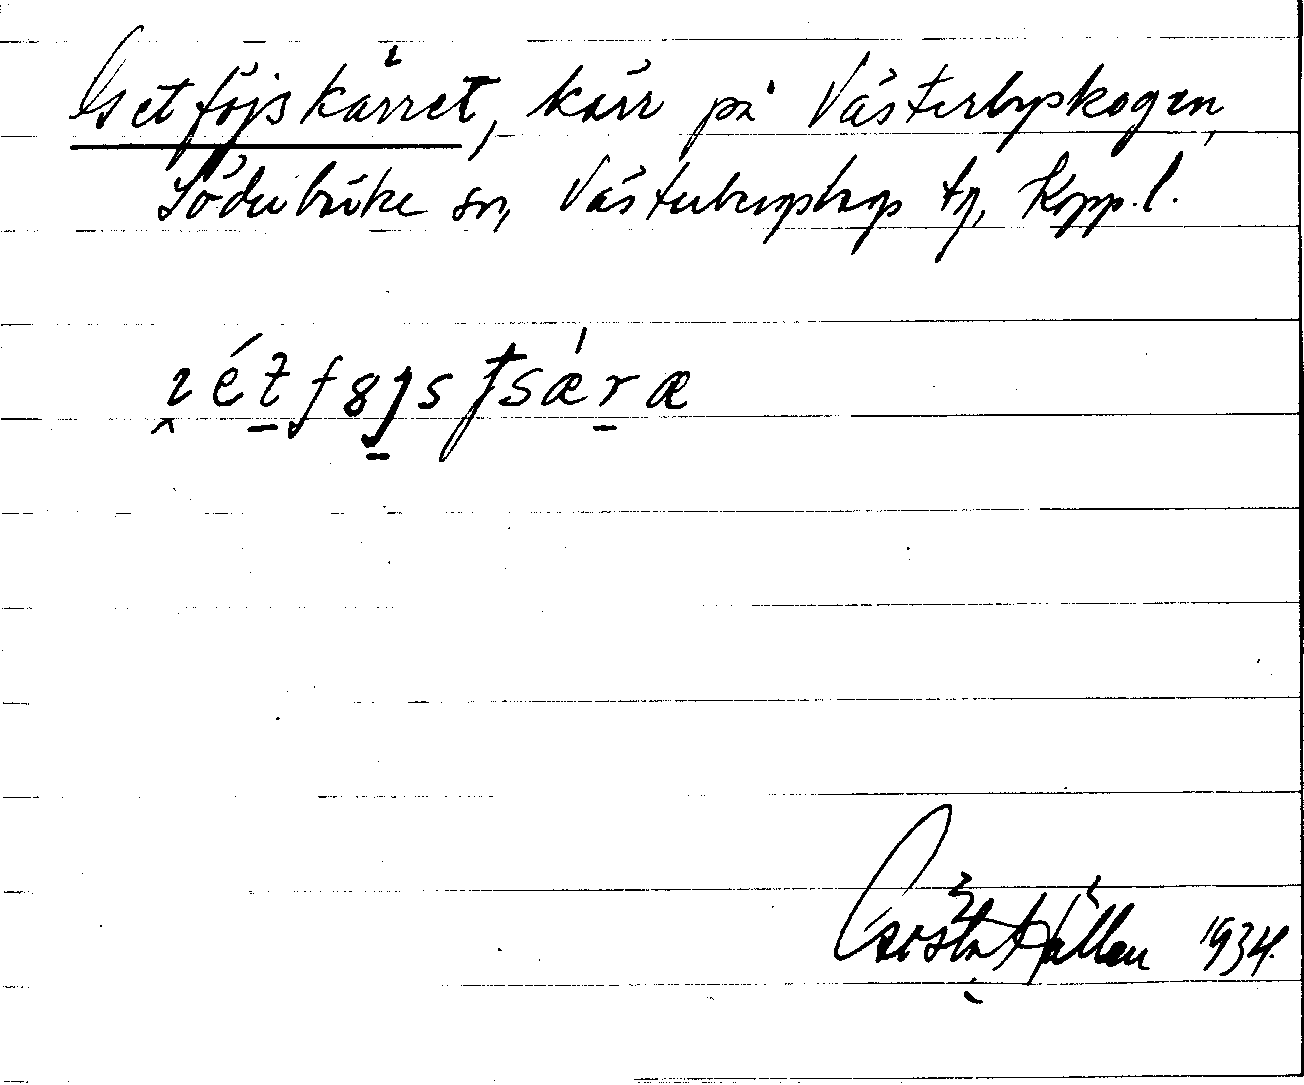 Getföjskärret, kärr på Västerbyskogen,
Söderbärke sn, Västerbergslags tg, Kopp. l.
Gösta Hällen 1934.